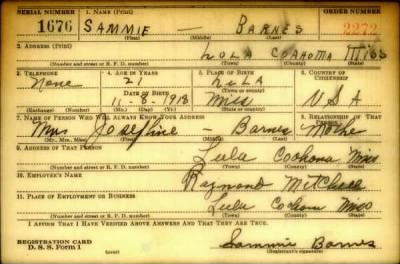 SERIAL NUMBER 1. NAME (Print) ORDER NUMBER
1676 SAMMIE — BARNES 2272
(First) (Middle) (Last)
2. ADDRESS (Print)
LULA COAHOMA MISS
(Number and street or R. F. D. number) (Town) (County) (State)
3. TELEPHONE 4. AGE IN YEARS 5. PLACE OF BIRTH 6. COUNTRY OF CITIZENSHIP
None 21 LULA
DATE OF BIRTH (Town or county)
11-8-1918 Miss U S A
(Exchange) (Number) (Mo.) (Day) (Yr.) (State or country)
7. NAME OF PERSON WHO WILL ALWAYS KNOW YOUR ADDRESS 8. RELATIONSHIP OF THAT PERSON
Mrs Josephine — Barnes Mother
(Mr., Mrs., Miss) (First) (Middle) (Last)
9. ADDRESS OF THAT PERSON
Lula Coahoma Miss
(Number and street or R. F. D. number) (Town) (County) (State)
10. EMPLOYER'S NAME
Raymond Mitchell
11. PLACE OF EMPLOYMENT OR BUSINESS
Lula Coahoma Miss
(Number and street or R. F. D. number) (Town) (County) (State)
I AFFIRM THAT I HAVE VERIFIED ABOVE ANSWERS AND THAT THEY ARE TRUE.
REGISTRATION CARD
D. S. S. Form 1 Sammie Barnes
(Registrant's signature)